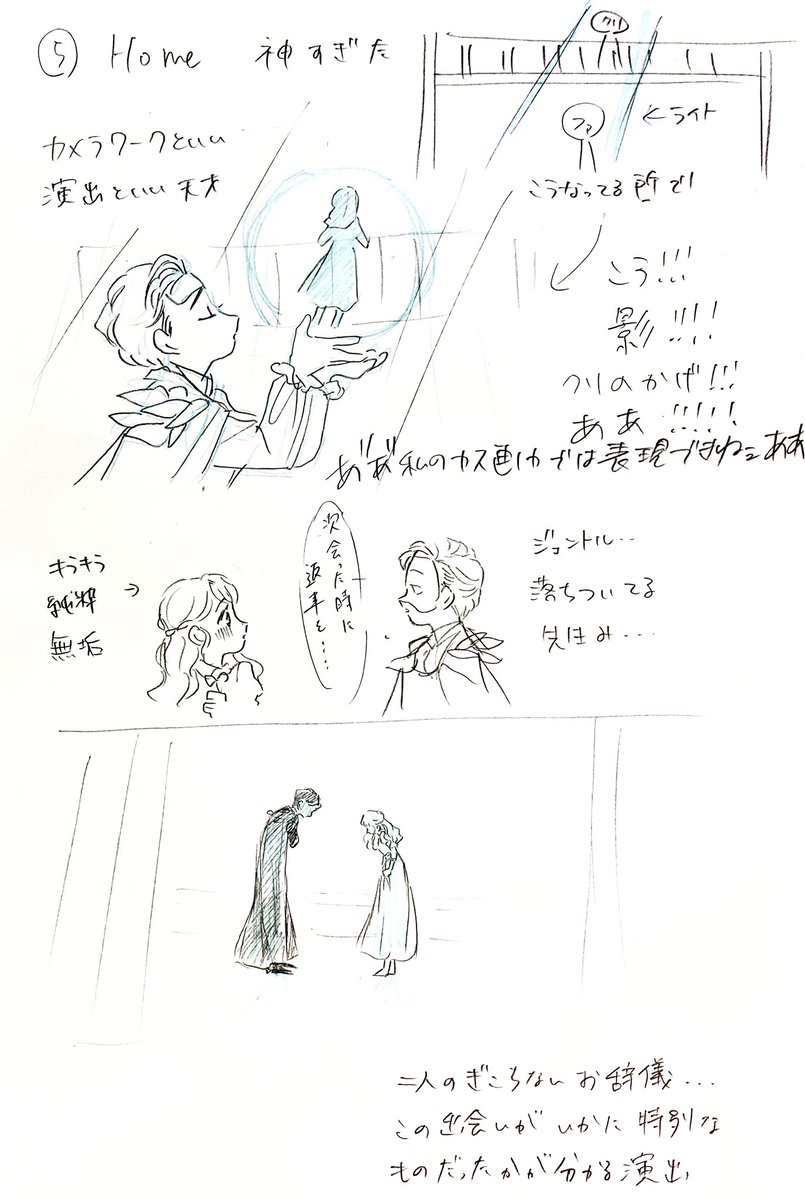 ⑤ Home 神すぎた
カメラワークといい
演出といい天才
クリ
ファ
←ライト
こうなってる所で!
こう!!!
影!!!!
クリのかげ!!!
ああ!!!!!
あ゛あ゛私のカス画力では表現できねェああ
キラキラ
純粋
無垢
次会った時に
返事を....
ジェントル..
落ちついてる
ほほえみ...
二人のぎこちないお辞儀...
この出会いがいかに特別な
ものだったかが分かる演出